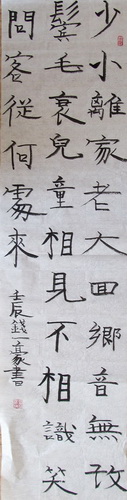 少小離家老大回鄉音無改
鬢毛衰兒童相見不相識笑
問客從何處來
壬辰錢一豪書